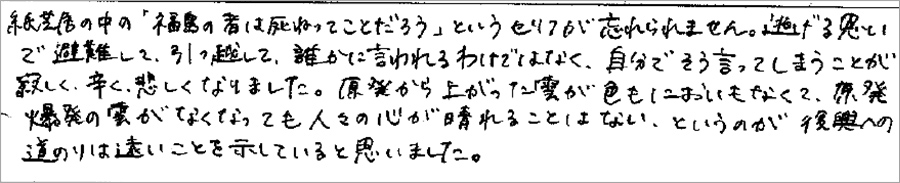 紙芝居の中の「福島の者は死ねってことだろう」というセリフが忘れられません。逃げる思い
で避難して、引っ越して、誰かに言われるわけではなく、自分でそう言ってしまうことが
寂しく、辛く、悲しくなりました。原発から上がった雲が色もにおいもなくて、原発
爆発の雲がなくなっても人々の心が晴れることはない、というのが復興への
道のりは遠いことを示していると思いました。